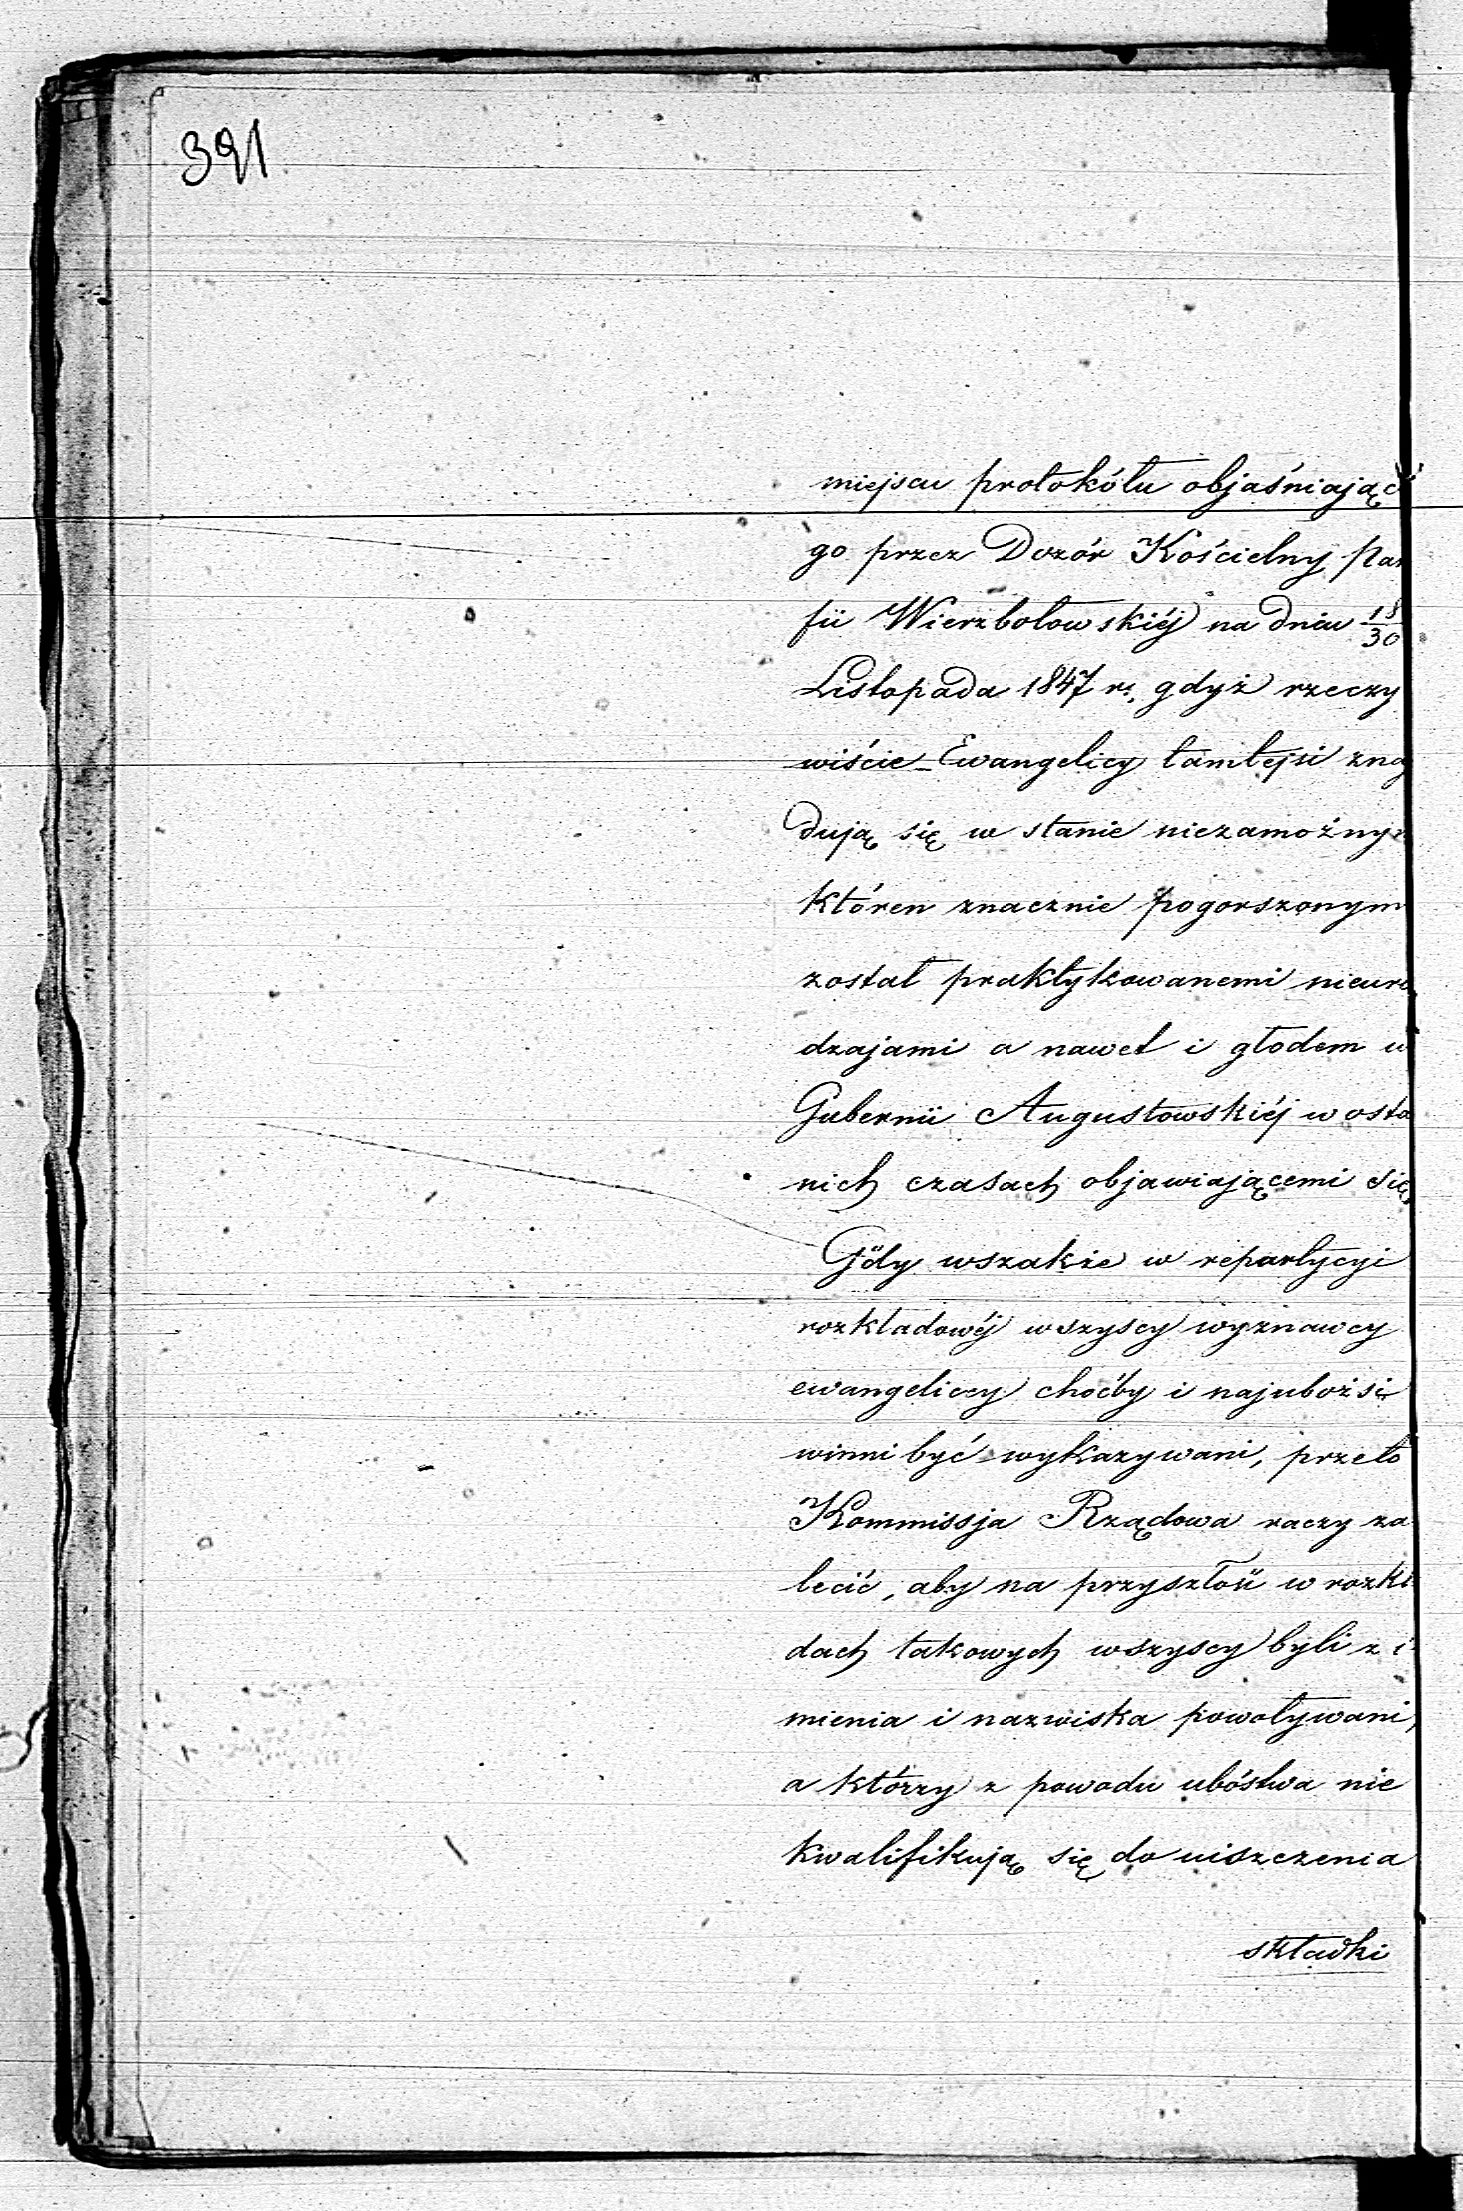 391
miejscu protokółu objaśniając
go przez Dozór Kościelny Par
fii Wierzbołowskiéj na dniu 18/30
Listopada 1847 r. gdyż rzeczy
wiście Ewangelicy tamtejsi zna
dują się w stanie niezamożnym
któren znacznie pogorszonym
został praktykowanemi nieuro
dzajami a nawet i głodem w
Gubernii Augustowskiéj w osta
nich czasach objawiającemi się,
Gdy wszakże w repartycyi
rozkładowéj wszyscy wyznawcy
ewangeliccy choćby i najubożsi
winni być wykazywani, przeto
Kommissja Rządowa raczy za
lecić, aby na przyszłość w rozkł
dach takowych wszyscy byli z i
mienia i nazwiska powoływani,
a którzy z powodu ubóstwa nie
kwalifikują się do uiszczenia
składki